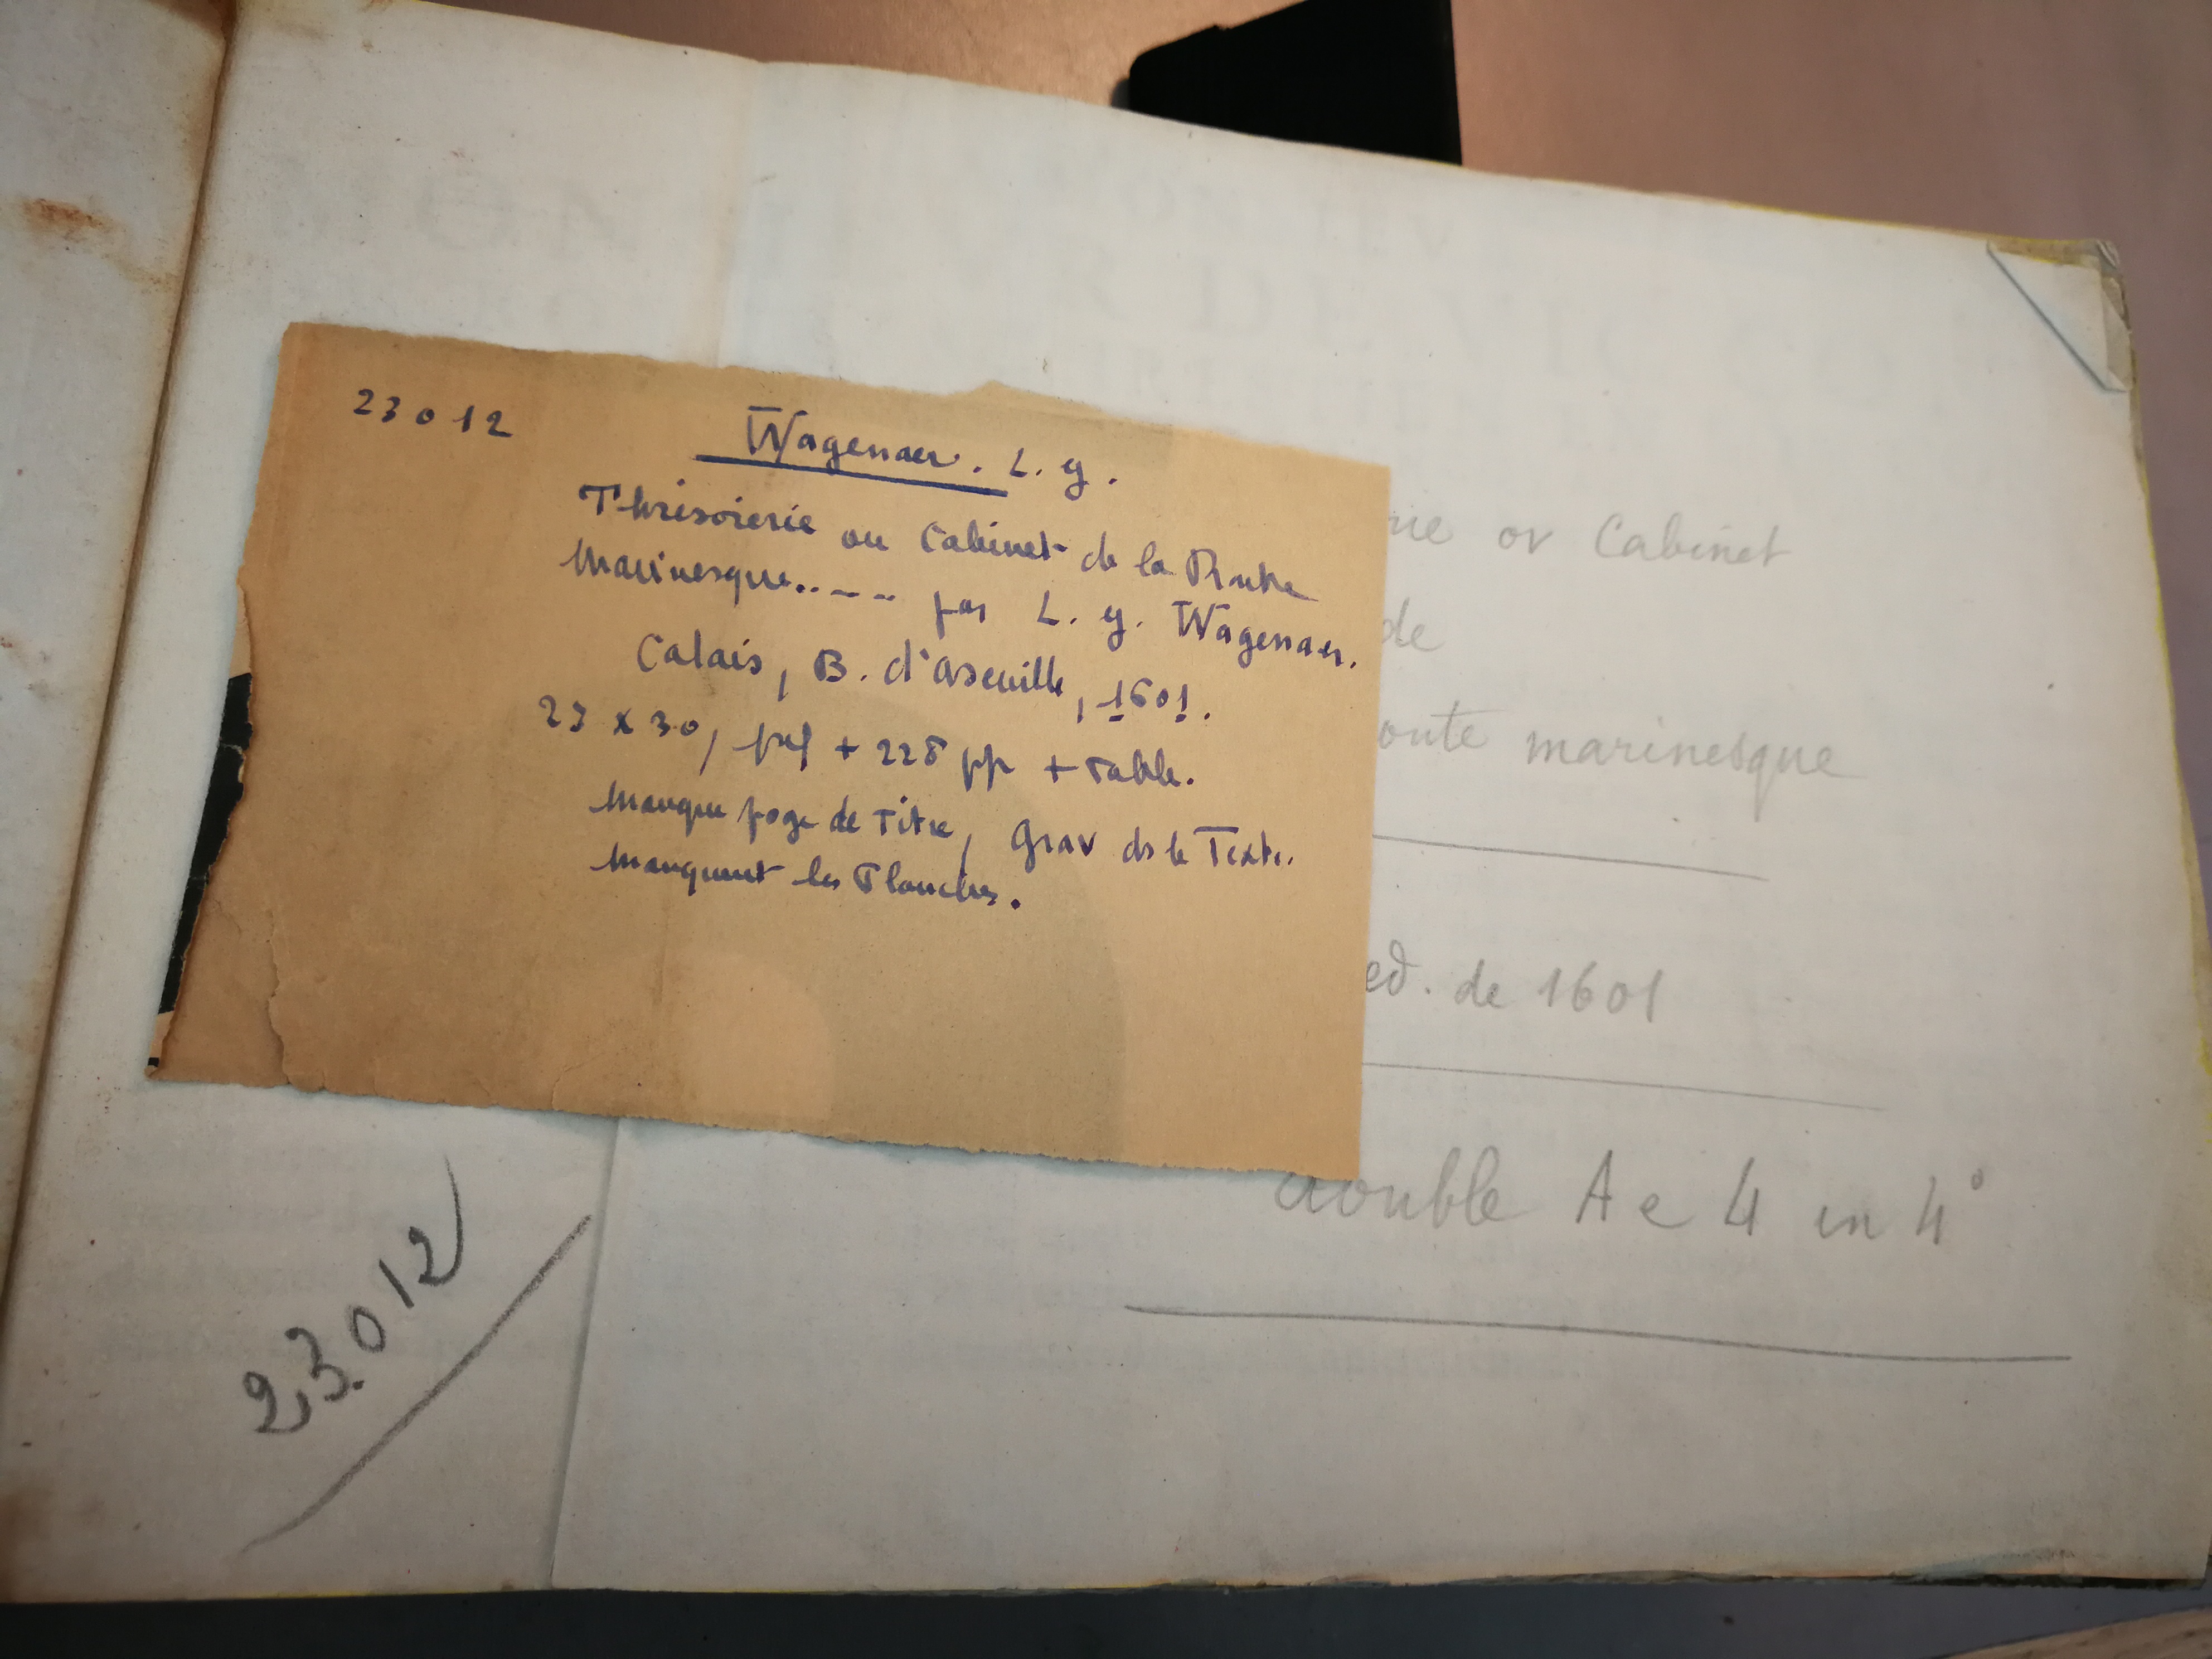 23012
Wagenaer. L. y.
Thrisorerie ou Cabinet de la Route
Marinesque..-- par L. y. Wagenaer.
Calais, B. d'Aseville, 1601.
23 x 30, pref + 228 pp + Table.
Manque page de Titre, Grav ds le Texte.
Manquent les Planches.
rie ov Cabinet
de
oute marinesque
ed. de 1601
double A e 4 in 4°
23.012